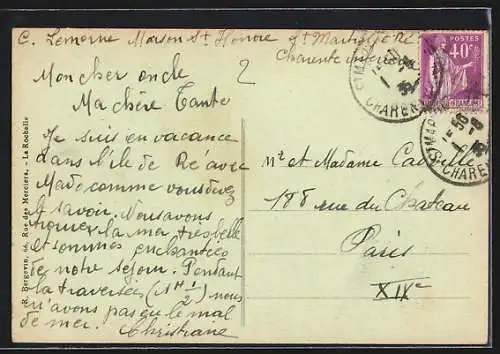 C. Lemorne Maison St Honoré St Martin de Ré
Charente infre
2
Mon cher oncle
Ma chère Tante
Je suis en vacance
dans l'île de Ré avec
Mado comme vous devez
le savoir. Nous avons
la mer très belle
et sommes enchantées
de notre séjour. Pendant
la traversée (1H 1/2) nous
n'avons pas eu le mal
de mer.
Christiane
Mr et Madame
188 rue du Chateau
Paris
XIVe
POSTES
40c
ST MAR
CHAREN
ST MAR
CHAREN
R. Bergevin, 66, Rue des Merciers, - La Rochelle